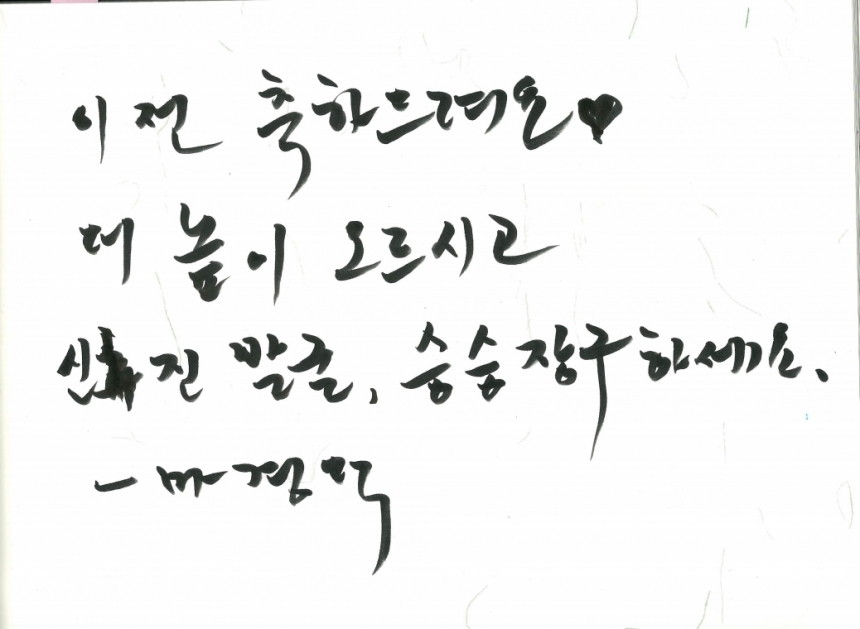 이전 축하드려요♥
더 높이 오르시고
신진 발굴, 승승장구하세요.
- 마경덕